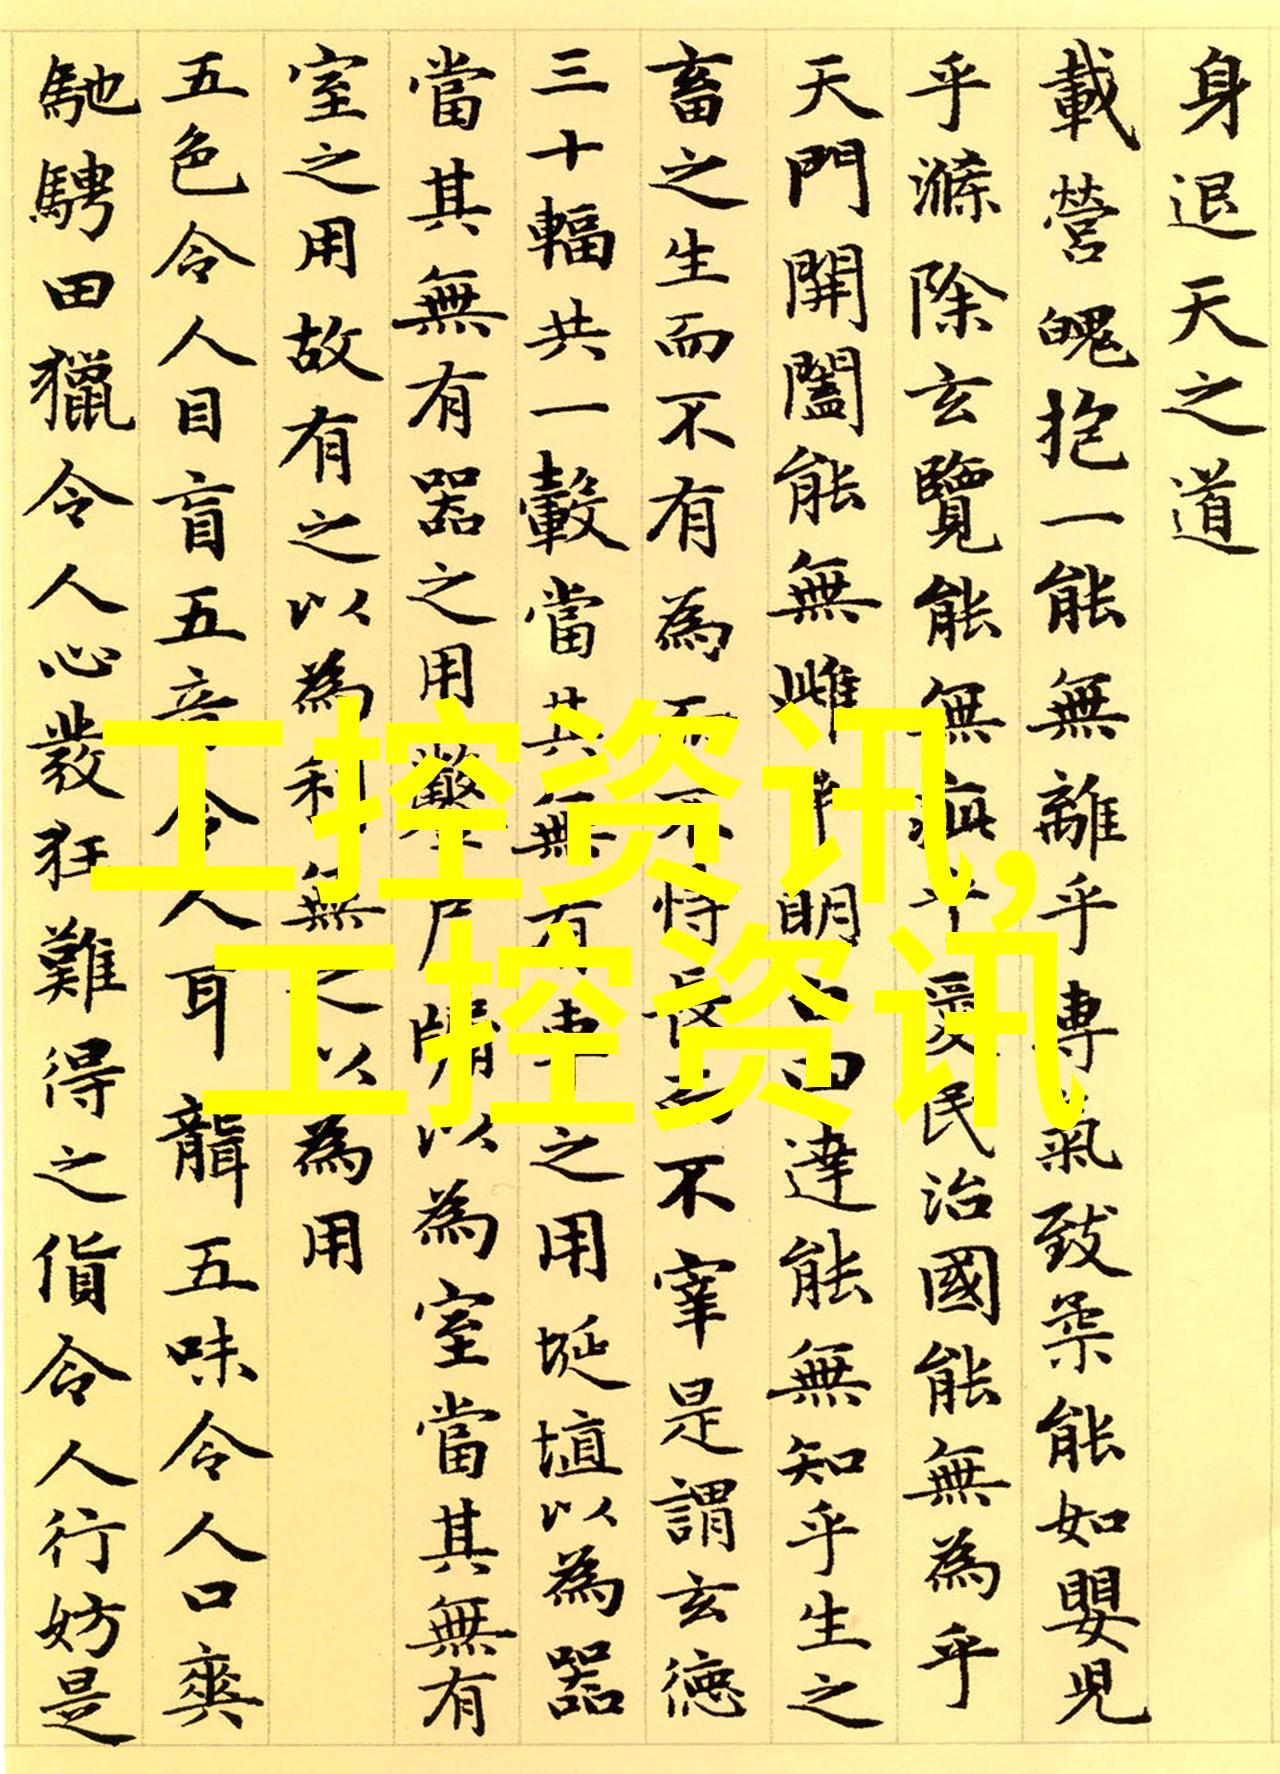 身退天之道
載營魄抱一能無離乎專氣致柔能如嬰兒
乎滌除玄覽能無疵乎愛民治國能無為乎
天門開闔能無雌乎明白四達能無知乎生之
畜之生而不有為而不恃長而不宰是謂玄德
三十輻共一轂當其無有車之用埏埴以為器
當其無有器之用鑿戶牖以為室當其無有
室之用故有之以為利無之以為用
五色令人目盲五音令人耳聾五味令人口爽
馳騁田獵令人心發狂難得之貨令人行妨是
工控资讯,
工控资讯